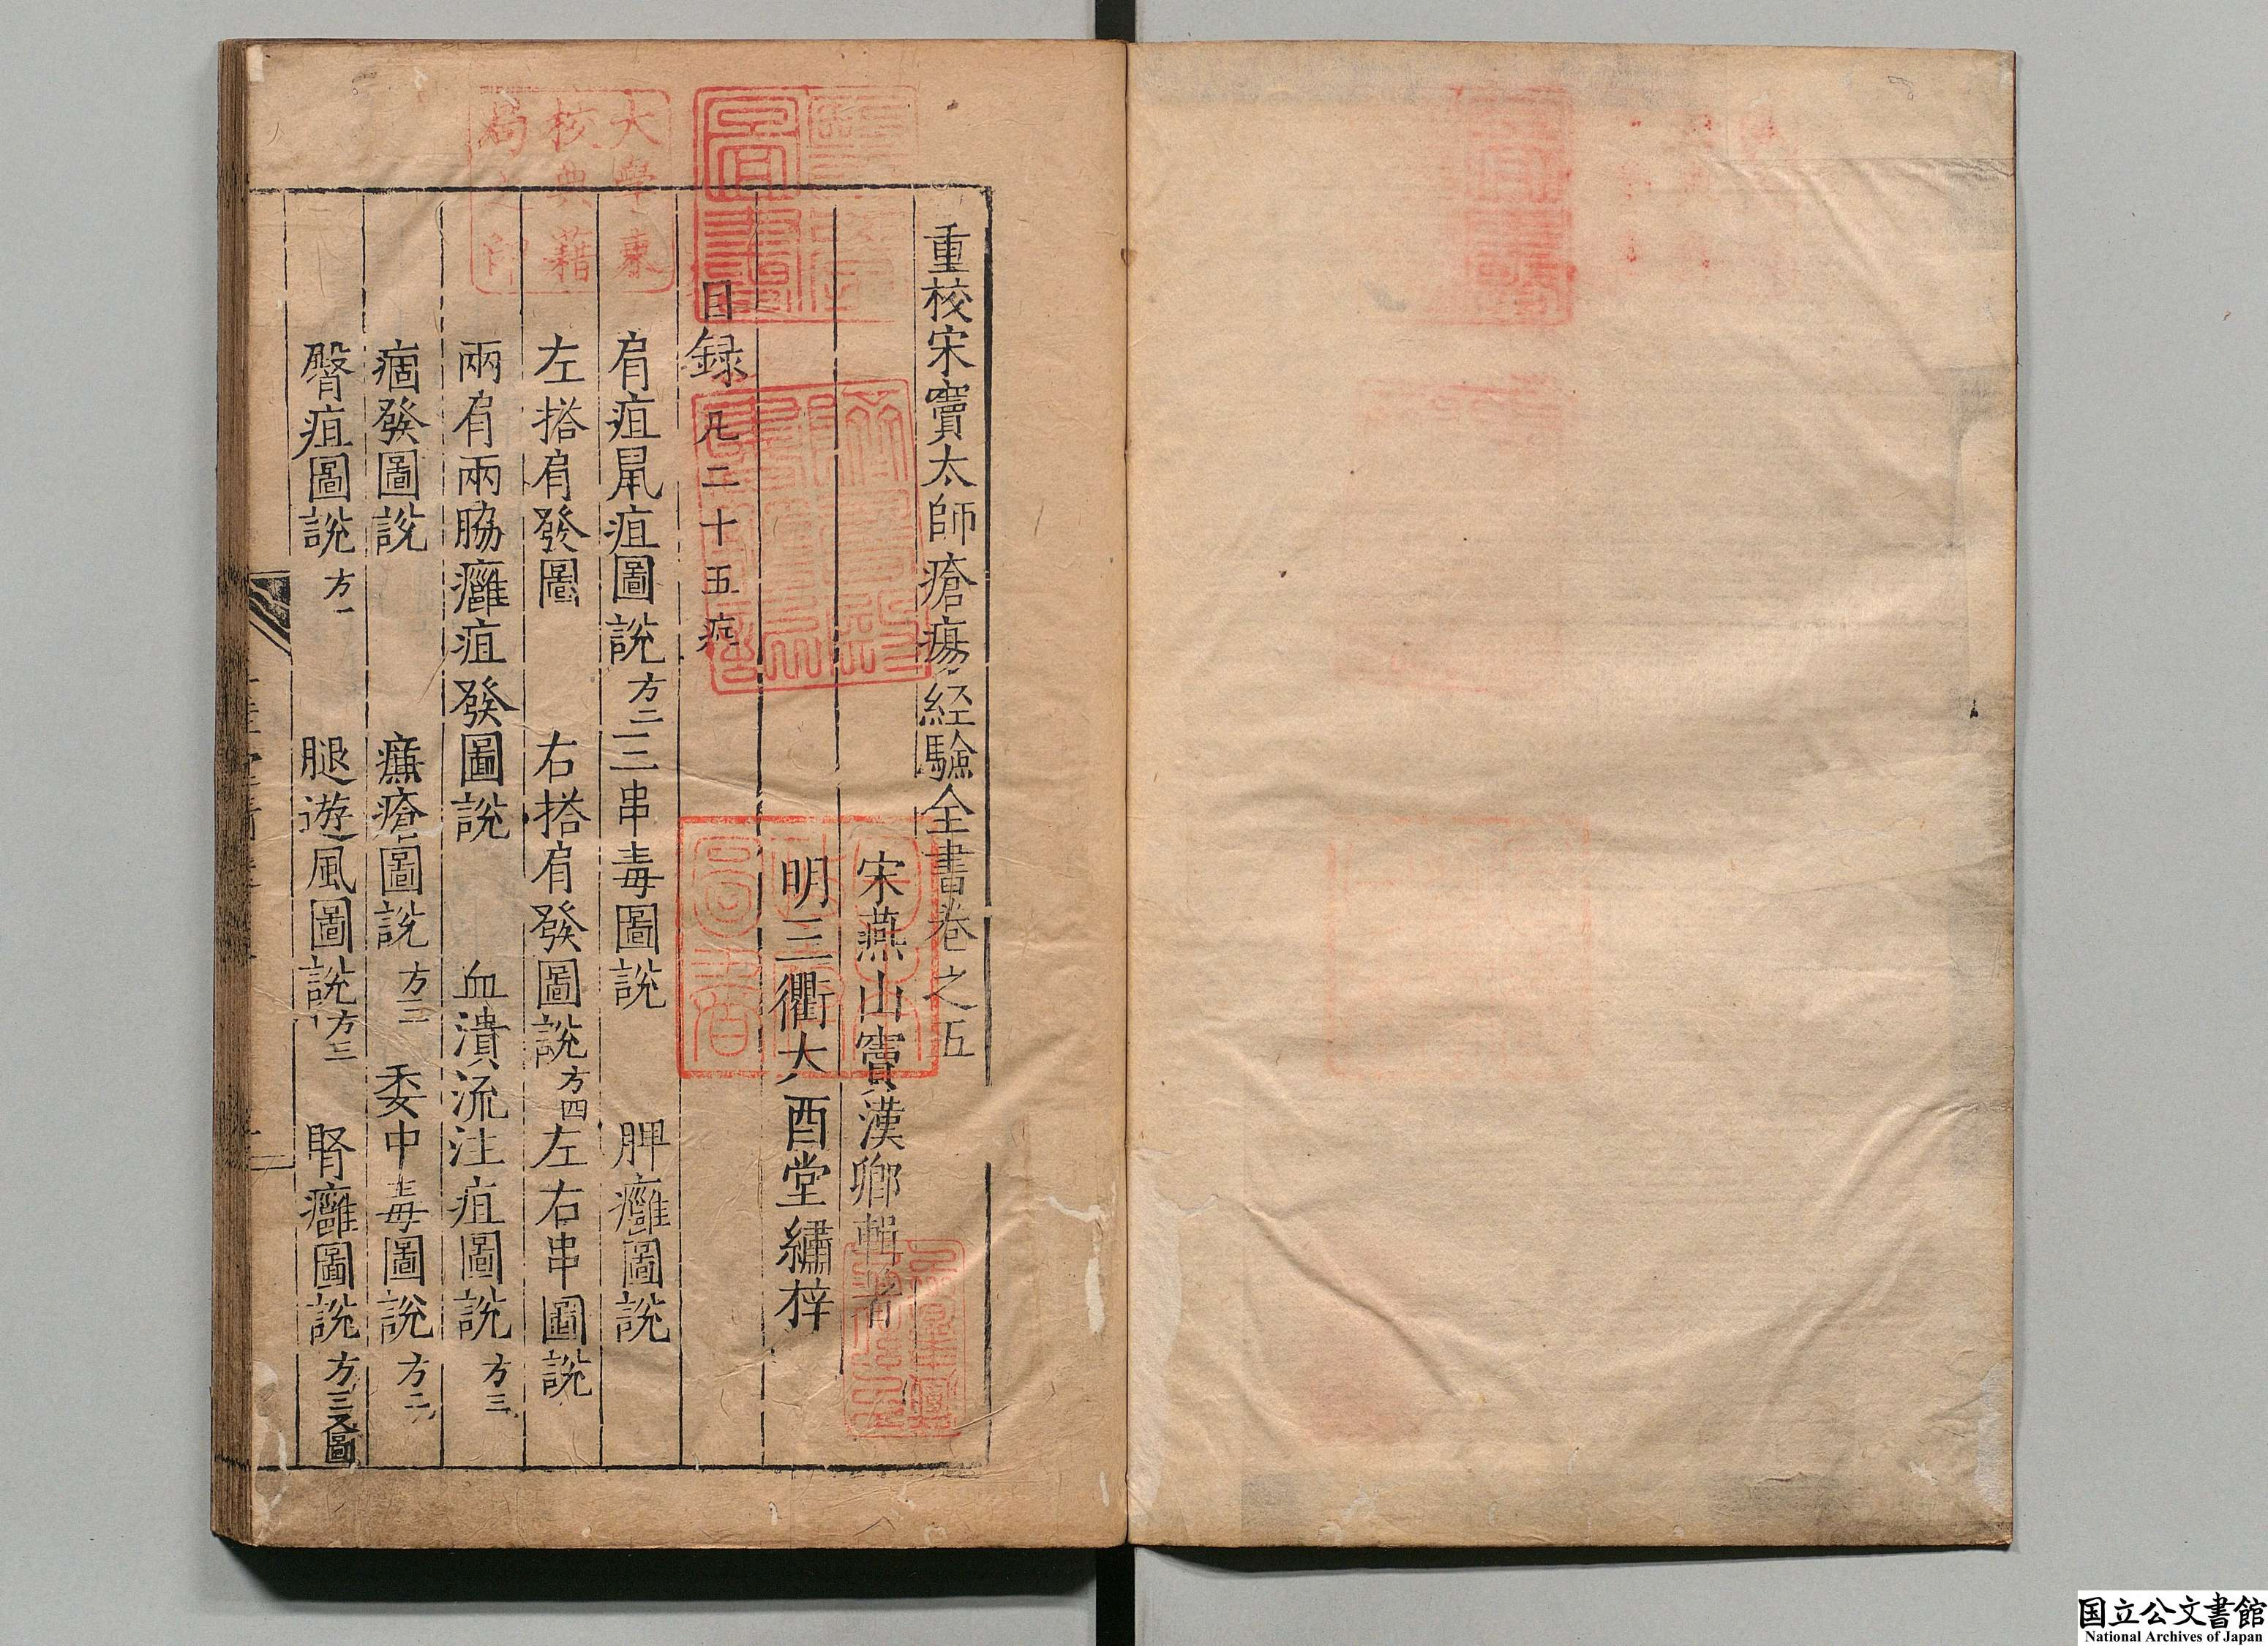 重校宋竇太師瘡瘍経驗全書卷之五
宋燕山竇漢卿輯著
明三衢大酉堂繡梓
目録 凡二十五症
肩疽鼠疽圖說 方二 三串毒圖說 胛癰圖說
左搭肩發圖 右搭肩發圖說 方四 左右串圖說
兩肩兩脇癰疽發圖說 血潰流注疽圖說 方三
痼發圖說 㾾瘡圖說 方二 委中毒圖說 方二
臀疽圖說 方一 腿遊風圖說 方三 腎癰圖說 方三又圖
大學東
校典藉
局之印
国立公文書館
National Archives of Japan